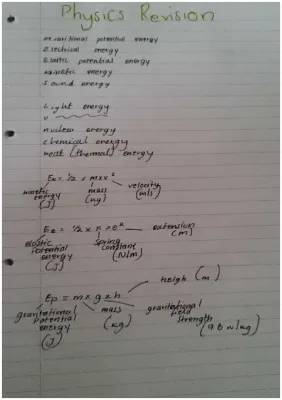 Physics Revision
Gravitational potential energy
Electrical energy
Elastic potential energy
Kinetic energy
Sound energy
Light energy
nuclear energy
chemical energy
heat (thermal) energy
Ek = 1/2 x m x v²
kinetic energy (J)
mass (kg)
velocity (m/s)
Ee = 1/2 x k x e²
elastic potential energy (J)
spring constant (N/m)
extension (m)
Ep = m x g x h
heigh (m)
gravitational potential energy (J)
mass (kg)
gravitational field strength (9.8 N/kg)